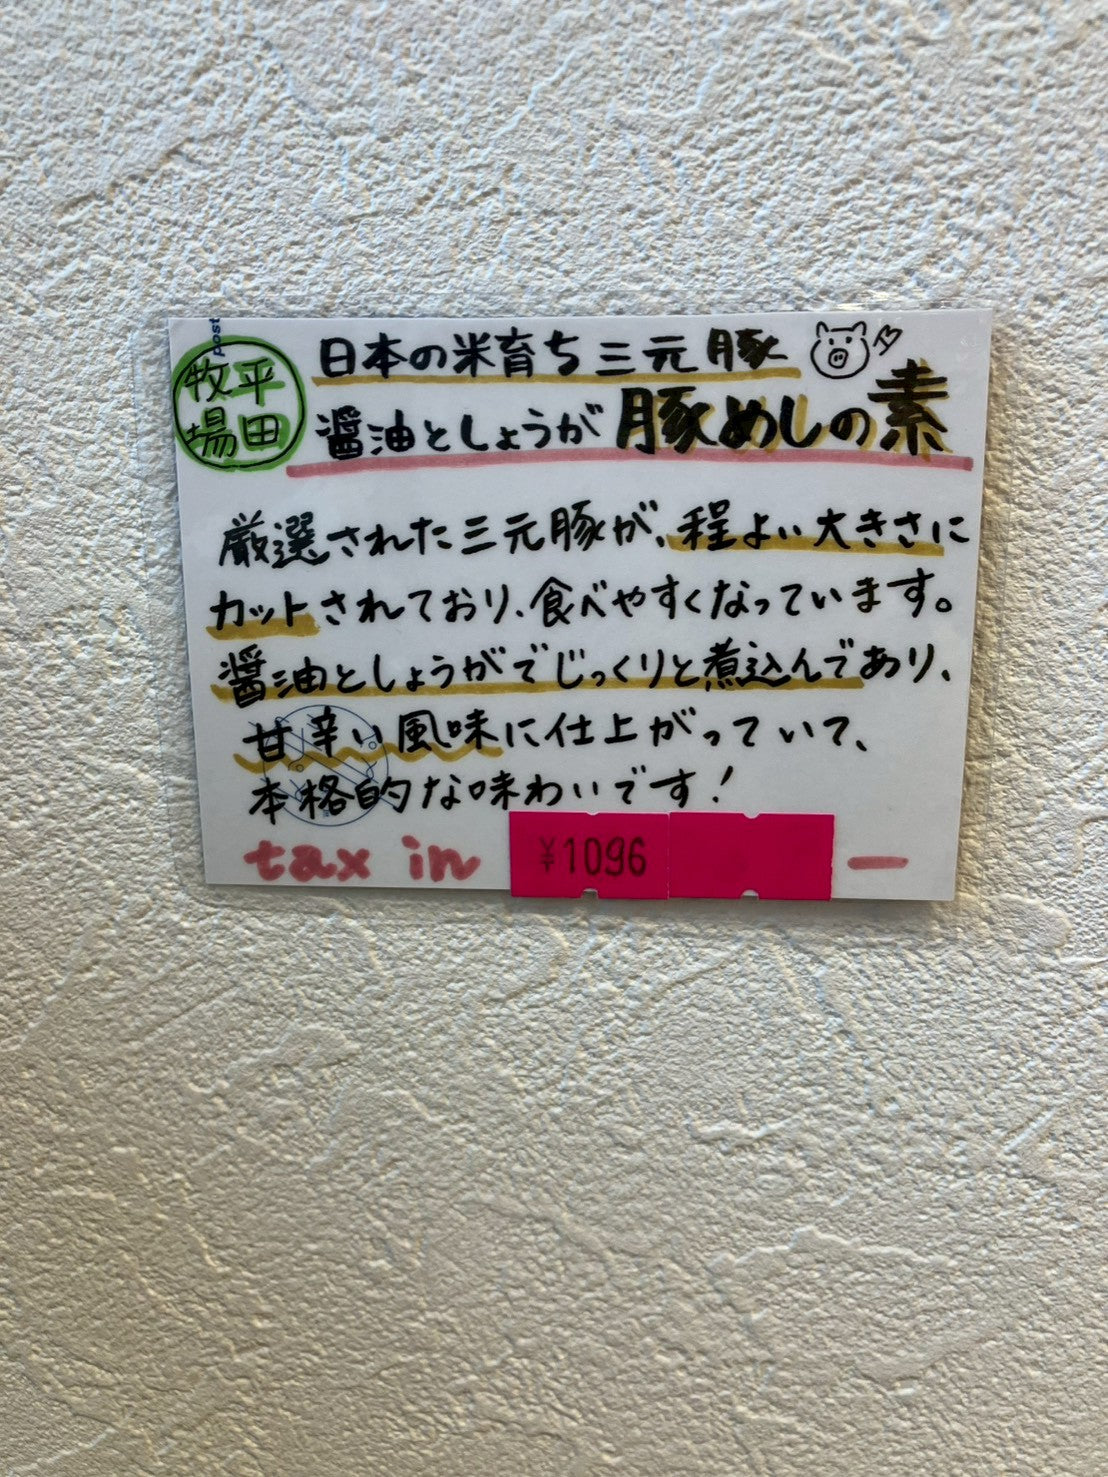 平田
牧場
日本の米育ち三元豚
醤油としょうが 豚めしの素
厳選された三元豚が、程よい大きさに
カットされており、食べやすくなっています。
醤油としょうがでじっくりと煮込んであり、
甘辛い風味に仕上がっていて、
本格的な味わいです！
tax in ¥1096 ー
post